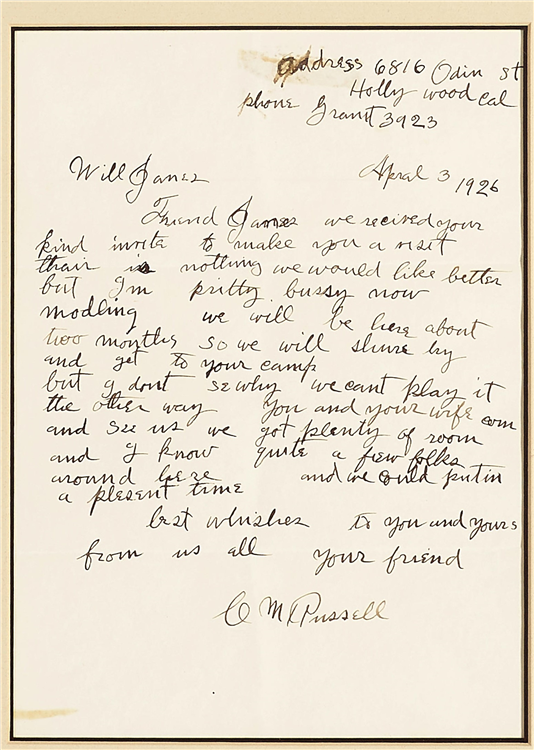 address 6816 Odin St
Holly wood Cal
phone Granit 3923
Will James
Apral 3 1926
Friend James we recived your
kind invite to make you a visit
thair is nothing we would like better
but Im pritty bussy now
modling we will be here about
two months so we will shure try
and get to your camp
but I dont se why we cant play it
the other way you and your wife com
and see us we got plenty of room
and I know quite a few folks
around here and we could put in
a plesent time
best whishes to you and yours
from us all your friend
C M Russell